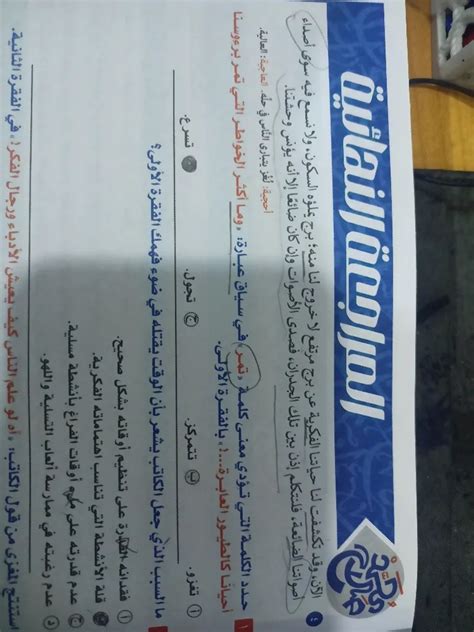 المراجعة النهائية
٤
الآن، وقد تكشفت لنا حياتنا الفكرية عن برج مرتفع لا خروج لنا منه؛ برج يملؤه السكون، ولا نسمع فيه سوى أصداء
أصواتنا الضائعة، فلنتكلم إذن بين تلك الجدران، فصدى الأصوات وإن كان ضائعًا إلا أنه يؤنس وحشتنا.
أحجية: لغز يتبارى الناس في حله. العاجية: العالية.
١
حدد الكلمة التي تؤدي معنى كلمة «تمر» في سياق عبارة: «وما أكثر الخواطر التي تمر برءوسنا
أحيانًا كالطيور العابرة...!» بالفقرة الأولى.
أ تغزو. ب تتمركز. ج تجول. تسرع.
ما السبب الذي جعل الكاتب يشعر بأن الوقت يقتله في ضوء فهمك الفقرة الأولى؟
أ فقدانه القدرة على تنظيم أوقاته بشكل صحيح.
قلة الأنشطة التي تناسب اهتماماته الفكرية.
ج عدم قدرته على ملء أوقات الفراغ بأنشطة مسلية.
د عدم رغبته في ممارسة ألعاب التسلية واللهو.
استنتج المغزى من قول الكاتب: «آه لو علم الناس كيف يعيش الأدباء ورجال الفكر!» في الفقرة الثانية.